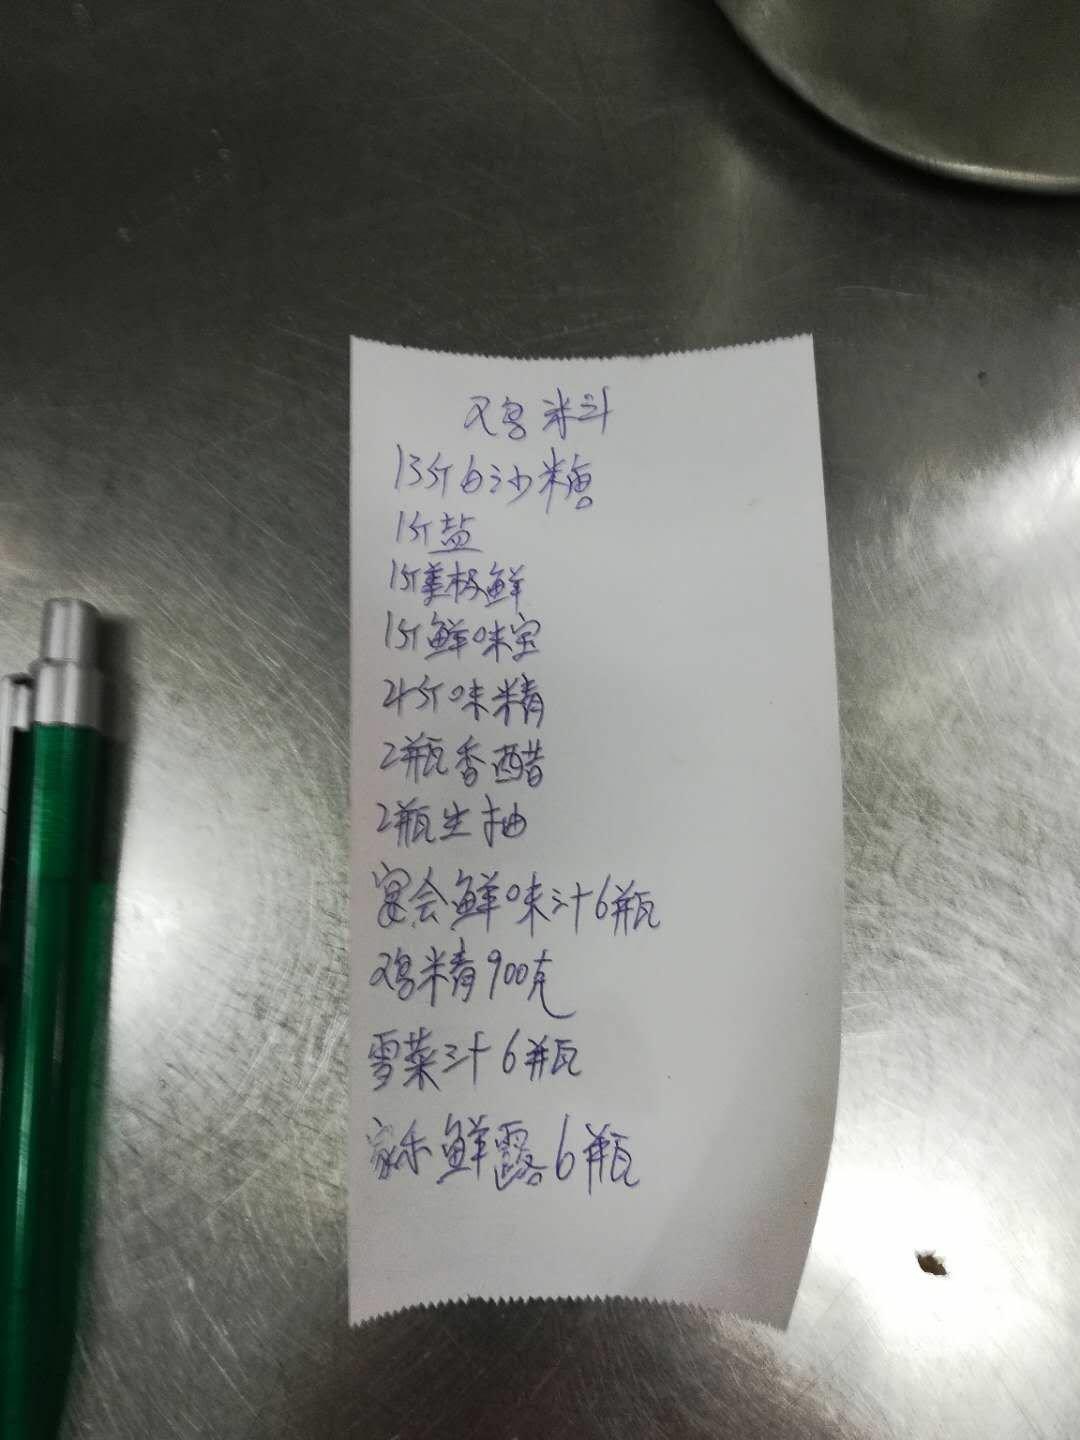 鸡米斗
13斤白沙糖
1斤盐
1斤美极鲜
1斤鲜味宝
4斤味精
2瓶香醋
2瓶生抽
宴会鲜味汁6瓶
鸡精900克
雪菜汁6瓶
家乐鲜露6瓶